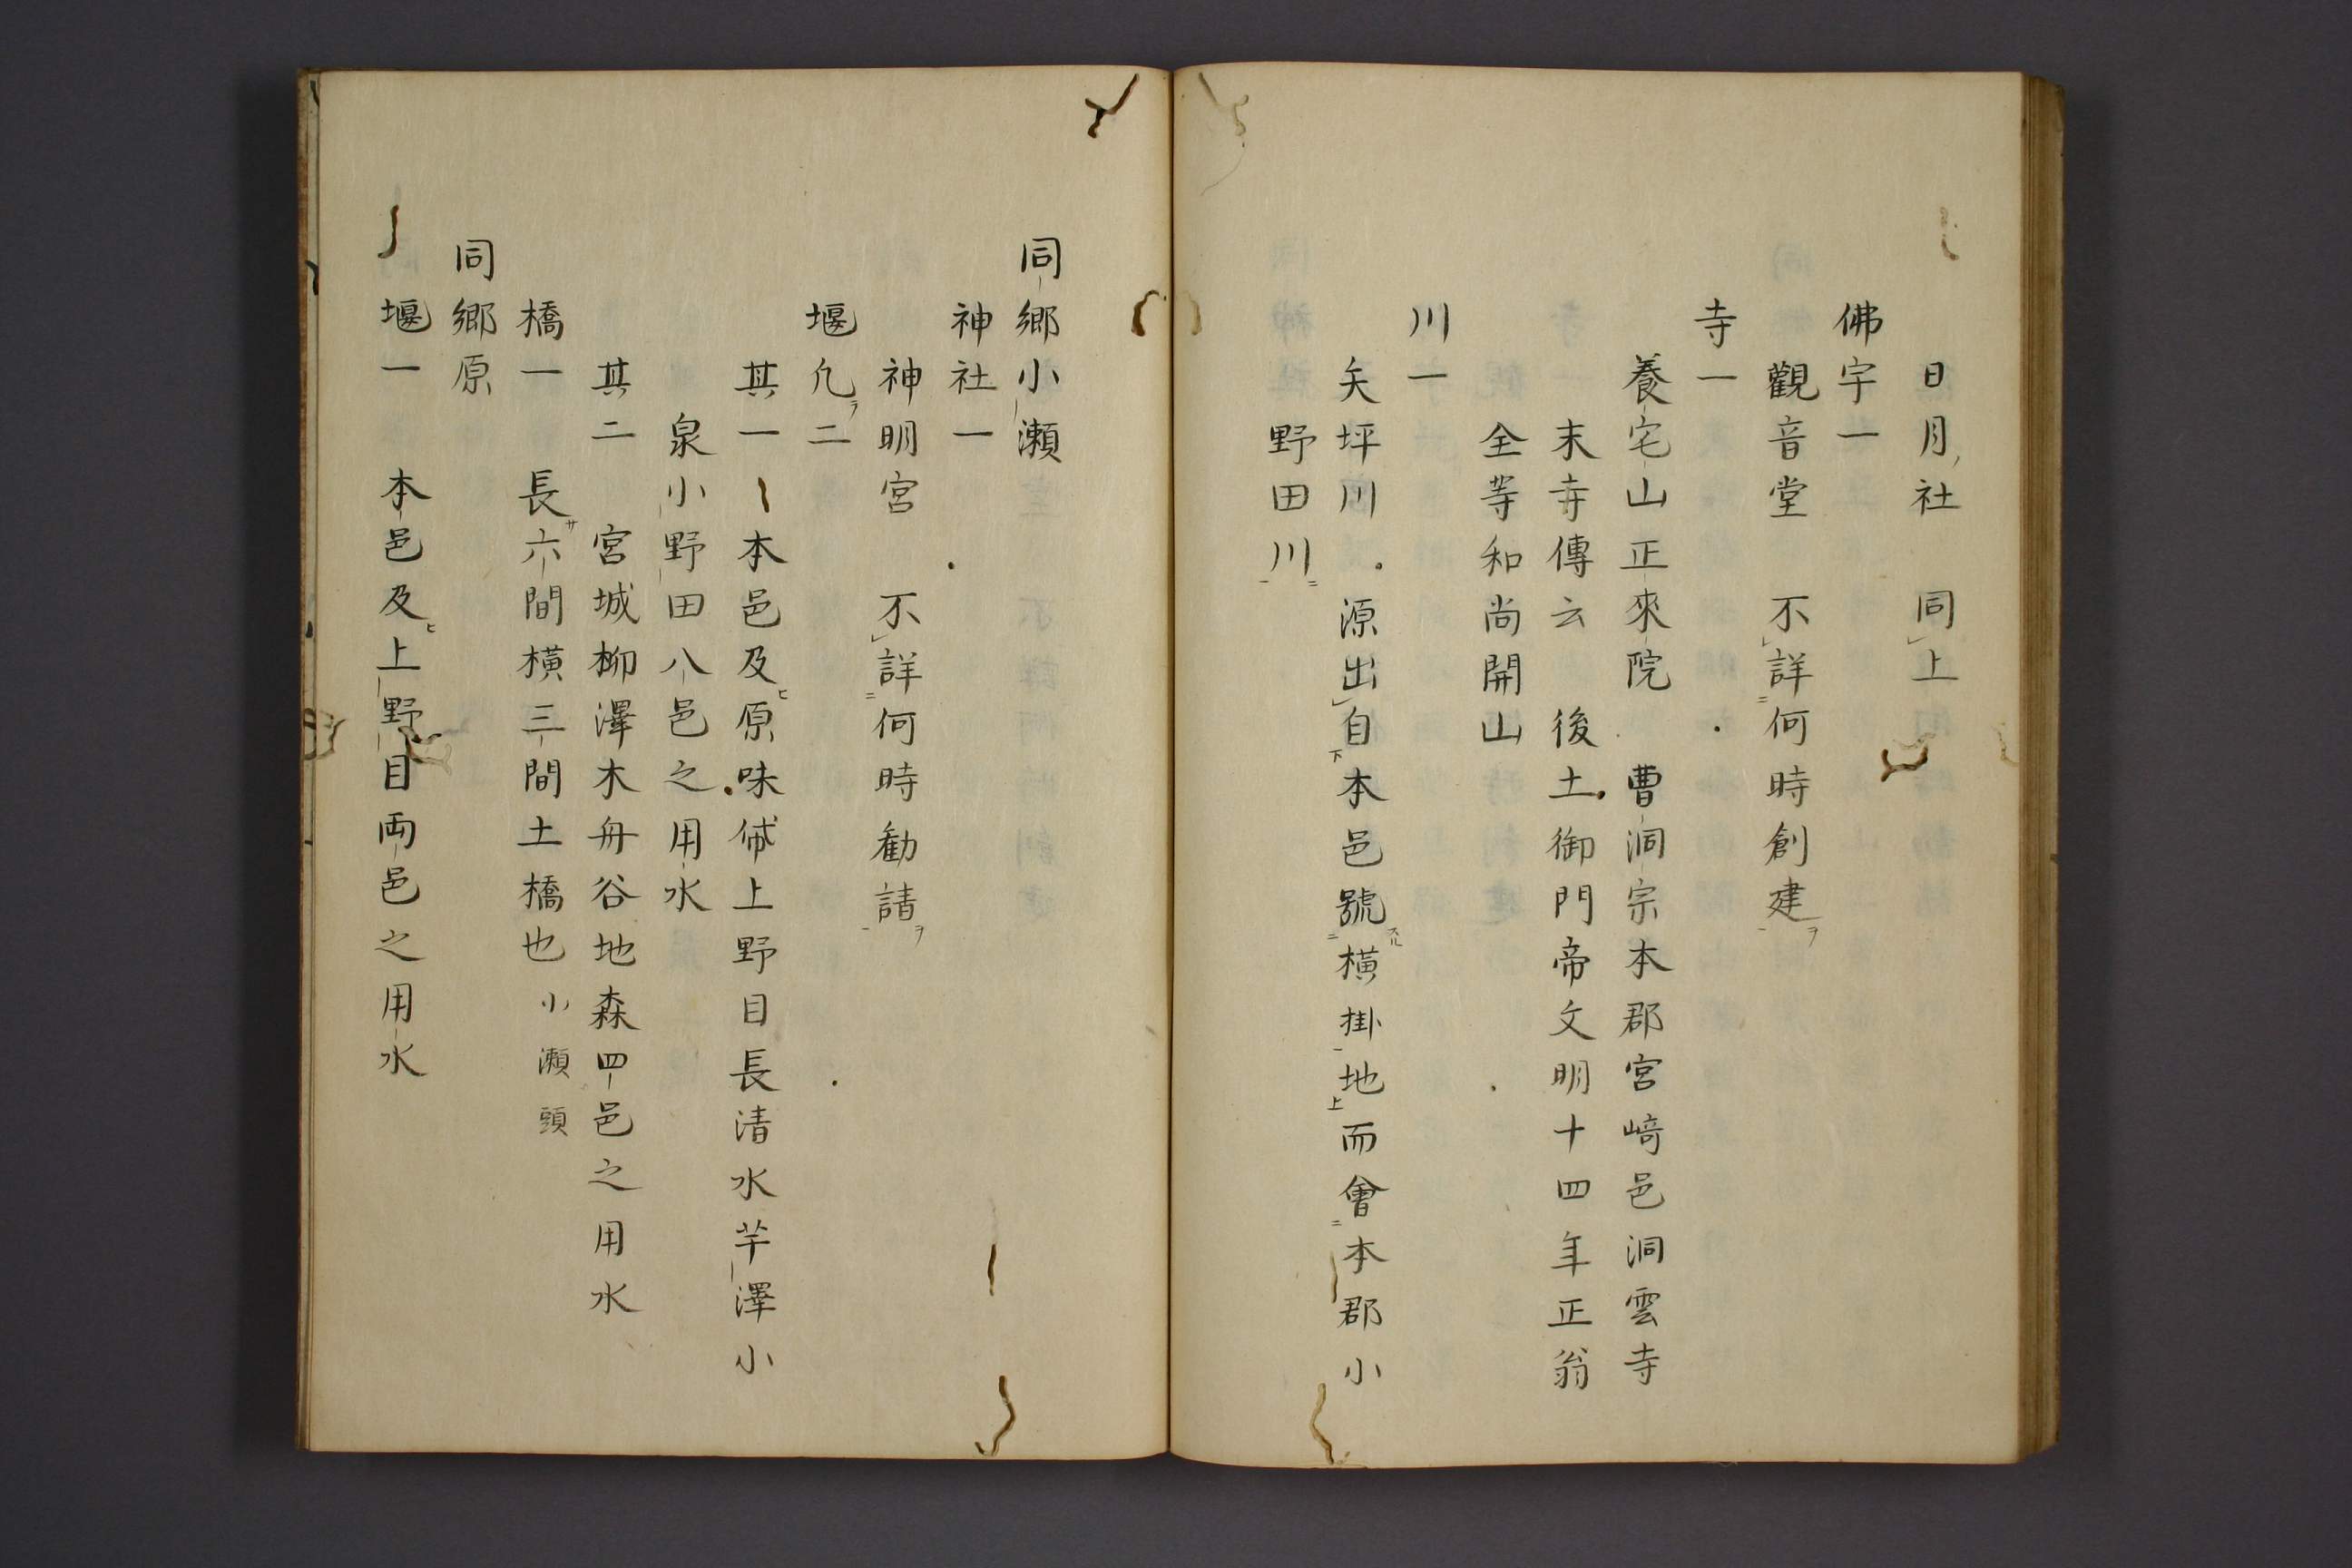 日月社　同上
佛宇一
觀音堂　不詳何時創建
寺一
養宅山正來院　曹洞宗本郡宮﨑邑洞雲寺
末寺傳云　後土御門帝文明十四年正翁
全等和尚開山
川一
矢坪川　源出自本邑號横掛地而會本郡小
野田川
同郷小瀬
神社一
神明宮　不詳何時勸請
堰凢二
其一　本邑及原味俻上野目長清水芋澤小
泉小野田八邑之用水
其二　宮城柳澤木舟谷地森四邑之用水
橋一　長六間横三間土橋也　小瀬頭
同郷原
堰一　本邑及上野目両邑之用水